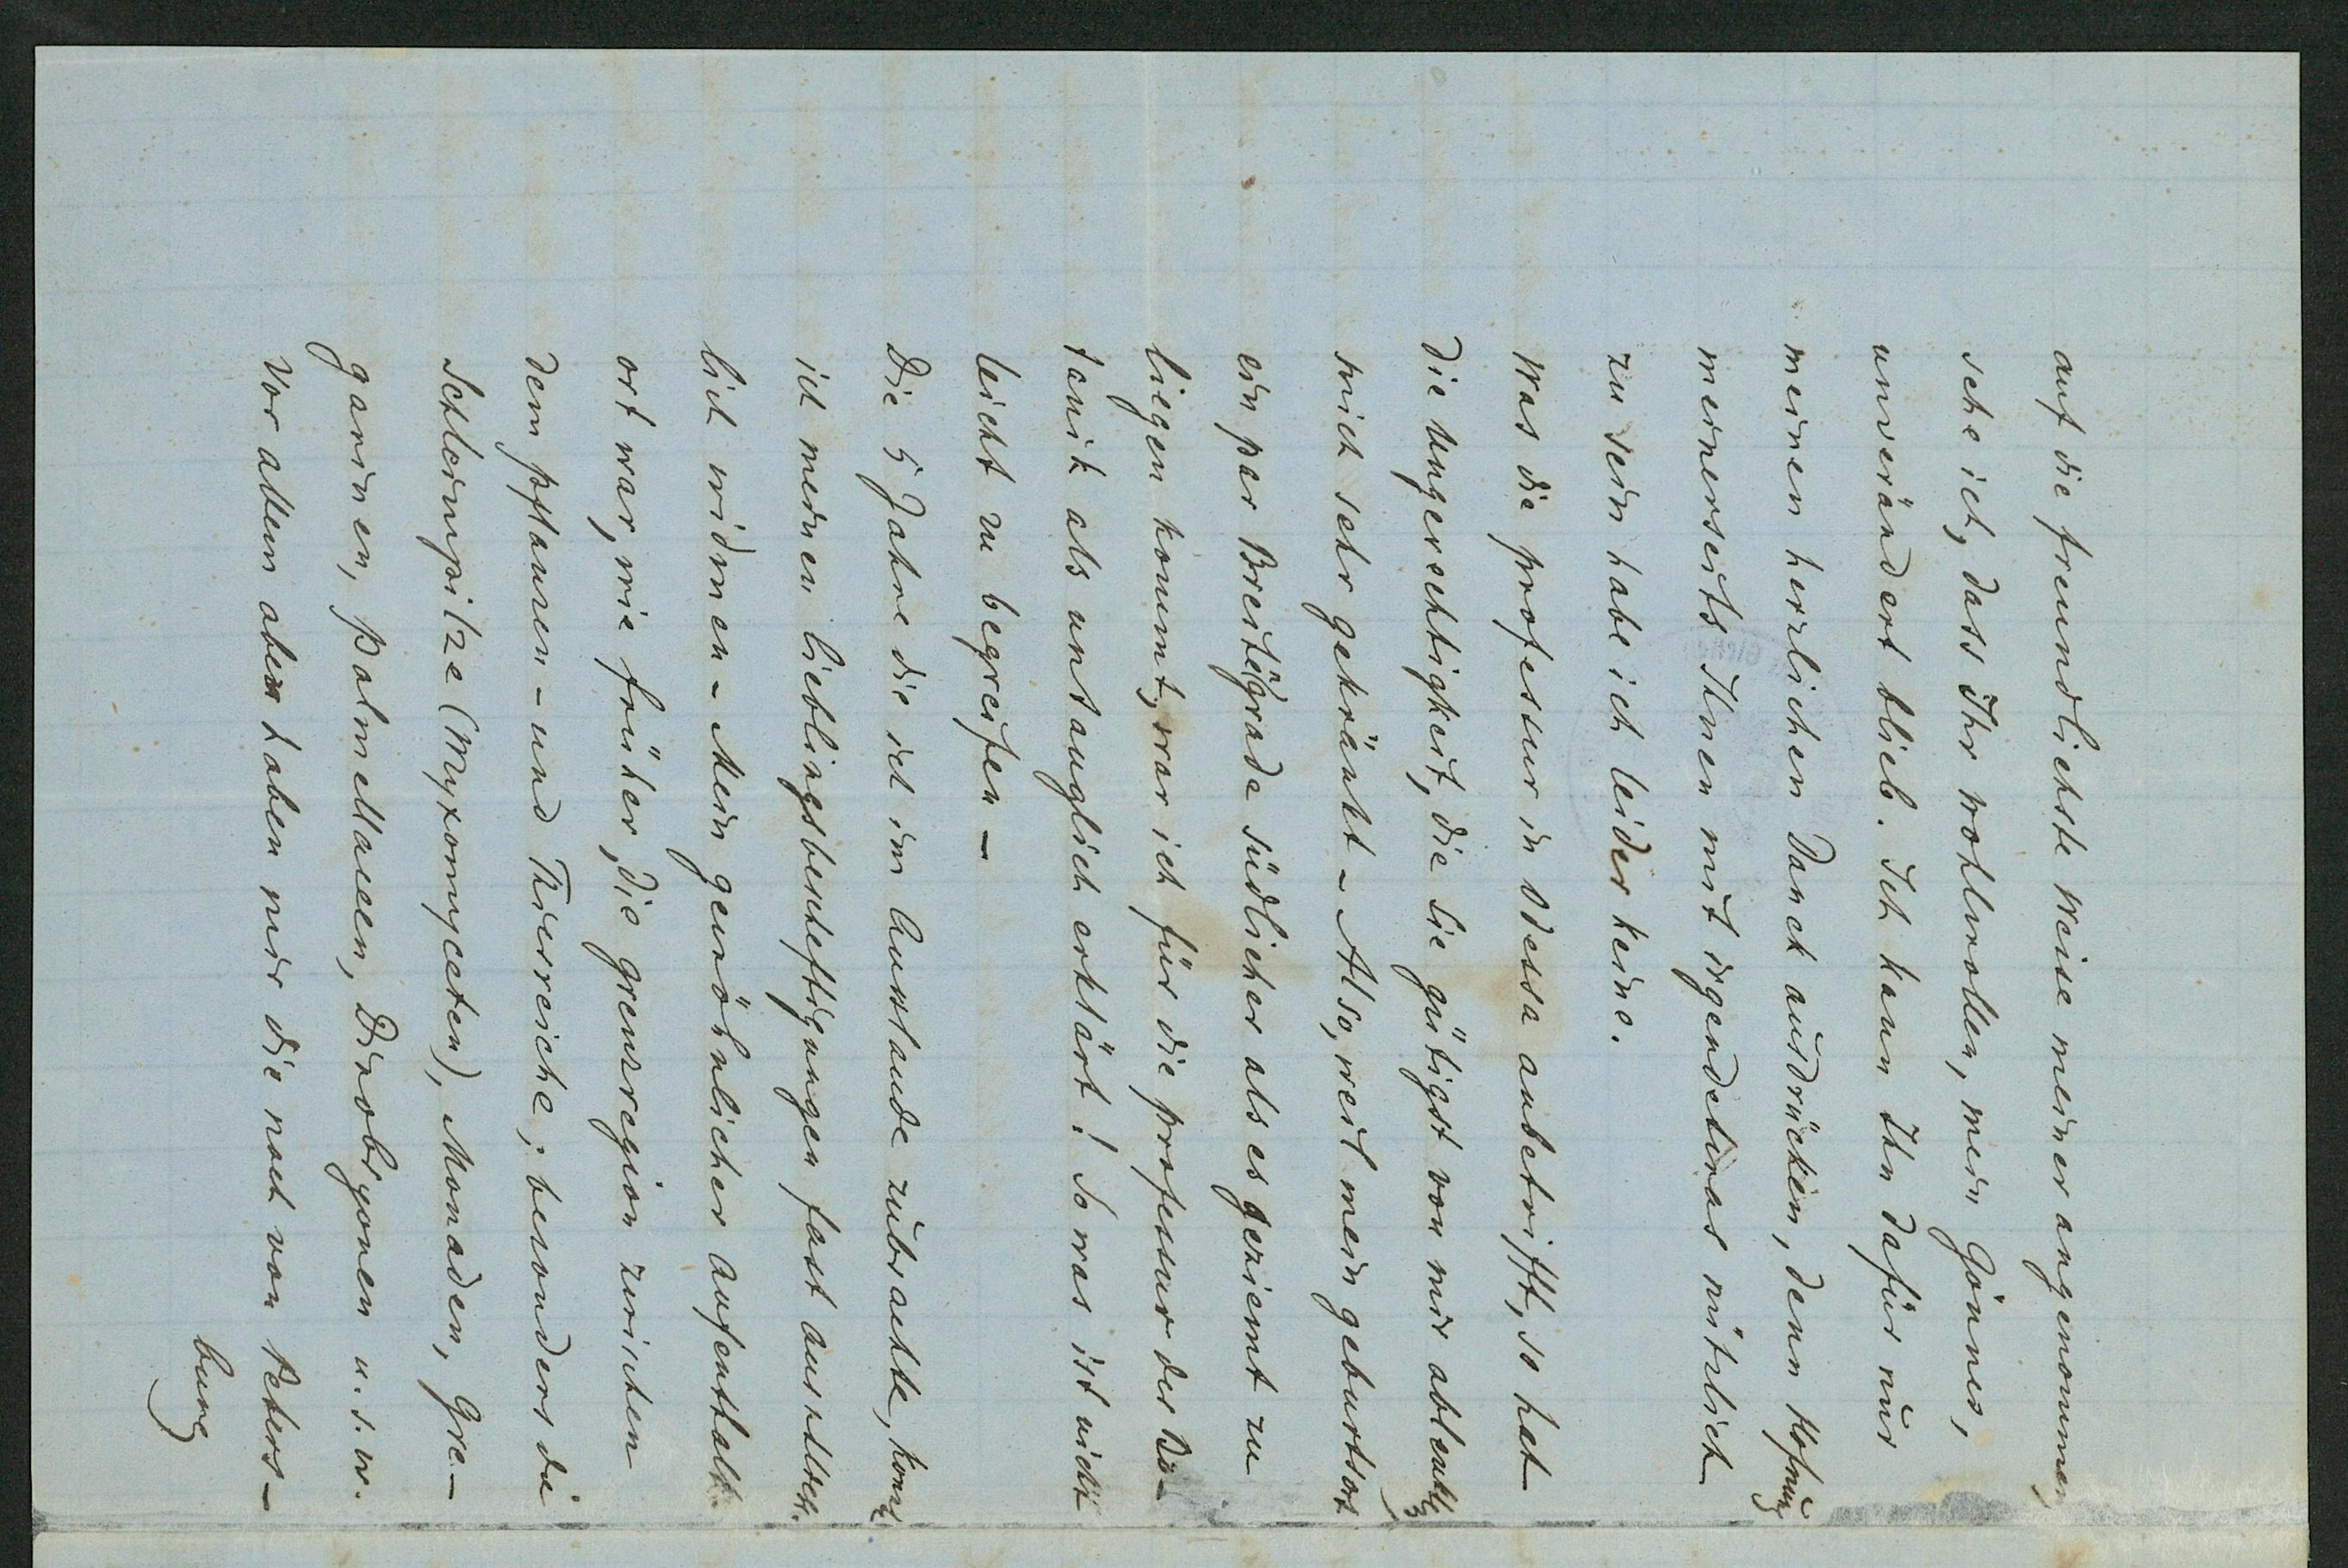 auf die freundlichste Weise meiner angenommen,
sehe ich, dass Ihr wohlwollen, mein Gönner,
unverändert blieb. Ich kann Ihn dafür nur
meinen herzlichen Danck ausdrücken, denn Hofnung
meinerseits Ihnen mit irgendetwas nützlich
zu sein habe ich leider keine.
Was die professur in Odessa anbetrifft, so hat
die Ungerechtigkeit, die Sie gütigst von mir ablenkten
mich sehr gekränkt – Also, weil mein geburtsort
ein par Breitegrade südlicher als es geziemt zu
liegen kommt, war ich für die professur der Bo-
tanik als untauglich erklärt! So was ist nicht
leicht zu begreifen –
Die 5 Jahre die ich im Auslande zubrachte, konnt
ich meinen lieblingsbescheftigungen fast ausschließ-
lich widmen – Mein gewöhnlicher Aufenthalt-
ort war, wie früher, die grenzregion zwichen
dem pflanzen – und Thierreiche; besonders die
Schleimpilze (Myxomyceten), Monaden, Gre-
garinen, palmellaceen, Dinobryonen u. s. w.
Vor allem aber haben mir die nach von Peters-
burg